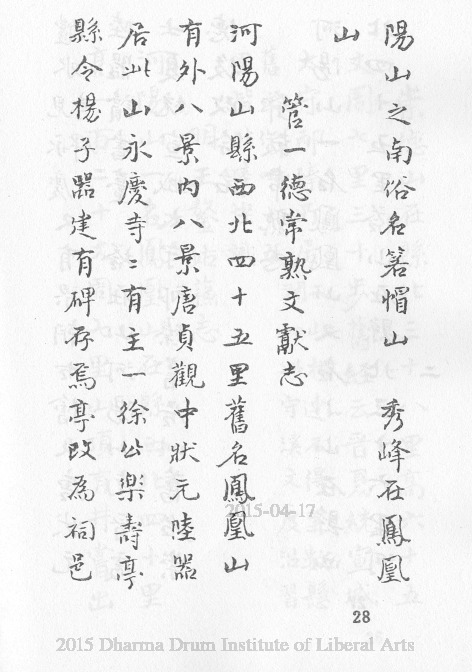 陽山之南俗名箬帽山　秀峰在鳳凰
山
管一德常熟文獻志
河陽山縣西北四十五里舊名鳳凰山
有外八景內八景唐貞觀中狀元陸器
居此山永慶寺〻有主一徐公樂壽亭
縣令楊子器建有碑存焉亭改為祠邑
2015-04-17
28
2015 Dharma Drum Institute of Liberal Arts